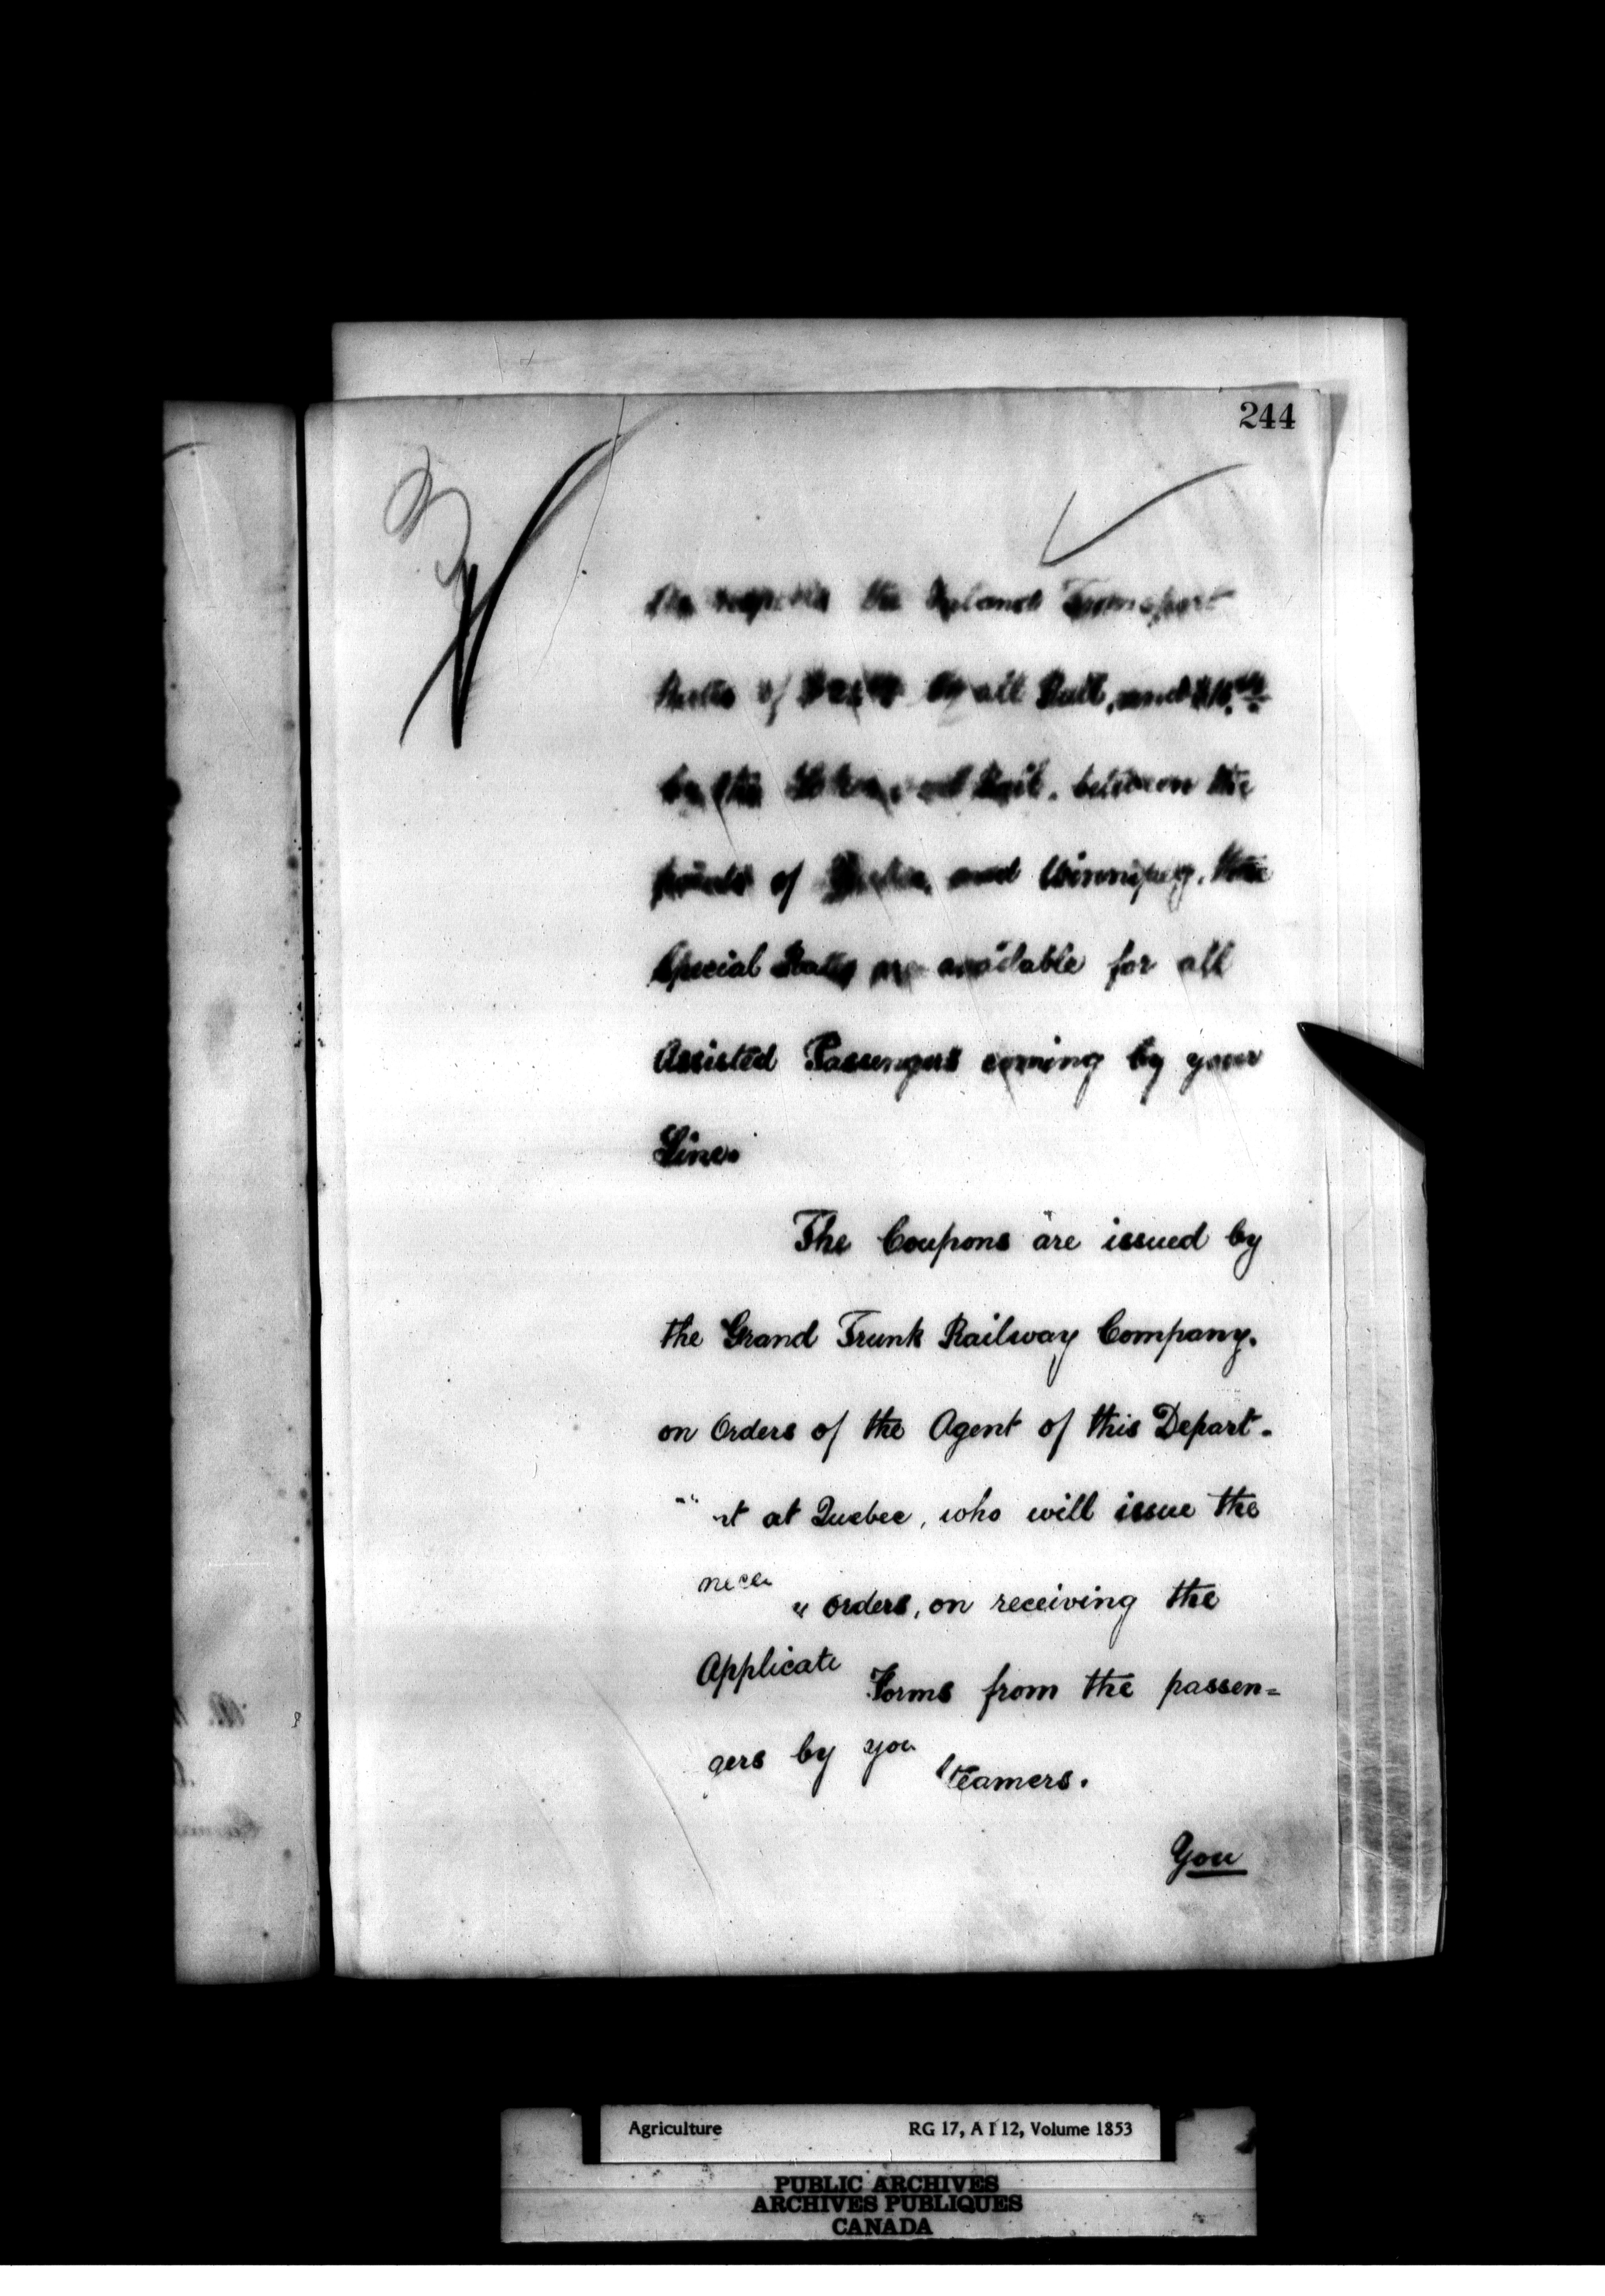 244
As respects the Inland Transport
Rates of by all Rail, and
by the and Rail, between the
points of Quebec and Winnipeg, the
Special Rates are available for all
Assisted Passengers coming by your
Line.
The Coupons are issued by
the Grand Trunk Railway Company.
on Orders of the Agent of this Depart-
nt at Quebec, who will issue the
nece orders, on receiving the
Applicati Forms from the passen=
gers by you Steamers.
You
Agriculture RG 17, A I 12, Volume 1853
PUBLIC ARCHIVES
ARCHIVES PUBLIQUES
CANADA